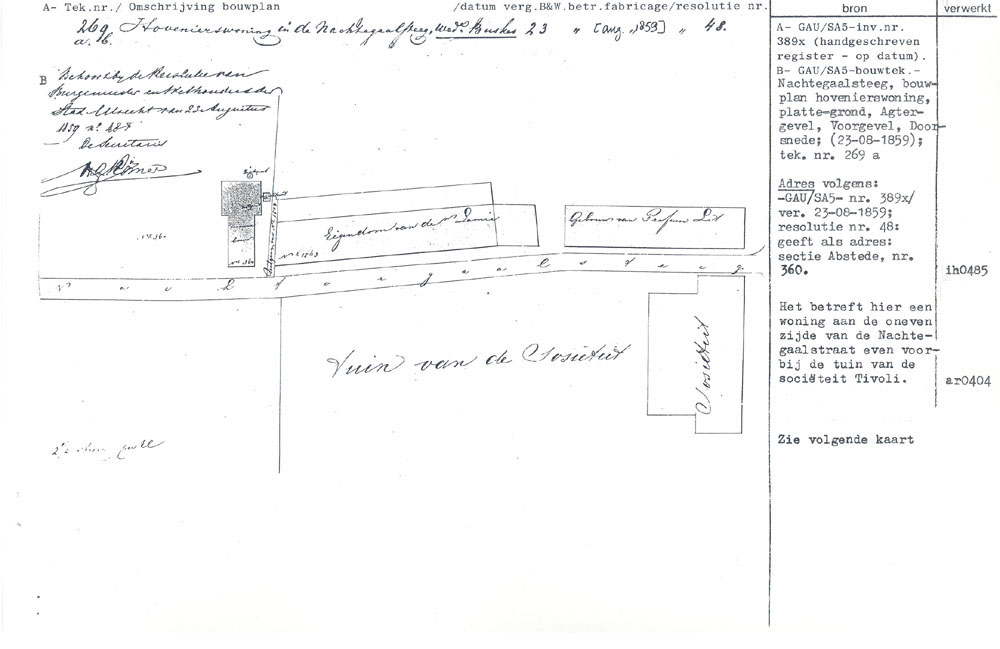 A- Tek.nr./ Omschrijving bouwplan /datum verg.B&W.betr.fabricage/resolutie nr. bron verwerkt
269 Hovenierswoning in de Nachtegaalsteeg, Wed. Buskes 23 " [aug. "1859] " 48.
a. b.
B Behoort bij de Resolutie van
Burgemeester en Wethouders der
Stad Utrecht van 23 Augustus
1859 no. 48
De Secretaris
Eigendom van de
No. 1563
Gebouw van Professor
N a c h t e g a a l s t e e g
Tuin van de Sosieteit
Sosieteit
A- GAU/SA5-inv.nr.
389x (handgeschreven
register - op datum).
B- GAU/SA5-bouwtek.-
Nachtegaalsteeg, bouw-
plan hovenierswoning,
platte-grond, Agter-
gevel, Voorgevel, Door-
snede; (23-08-1859);
tek. nr. 269 a
Adres volgens:
-GAU/SA5- nr. 389x/
ver. 23-08-1859;
resolutie nr. 48:
geeft als adres:
sectie Abstede, nr.
360. ih0485
Het betreft hier een
woning aan de oneven
zijde van de Nachte-
gaalstraat even voor-
bij de tuin van de
sociëteit Tivoli. ar0404
Zie volgende kaart